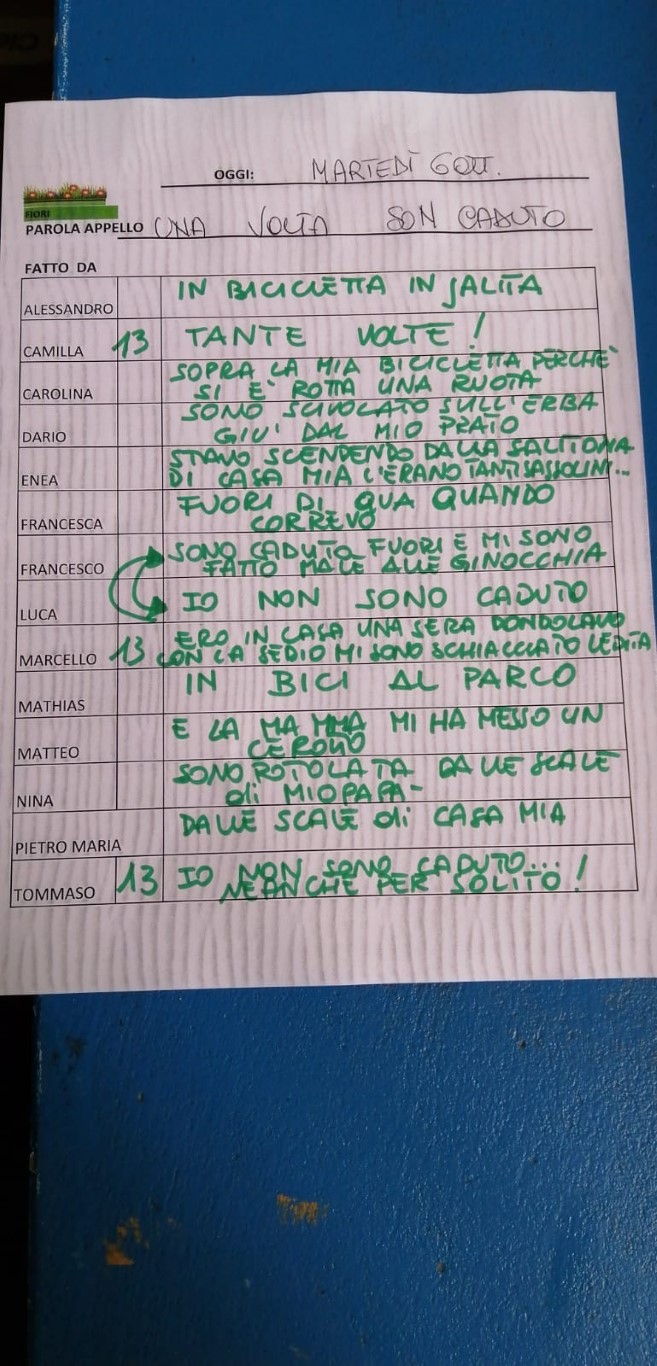 OGGI: MARTEDÌ 6 OTT.
FIORI
PAROLA APPELLO UNA VOLTA SON CADUTO
FATTO DA
ALESSANDRO IN BICICLETTA IN SALITA
CAMILLA 13 TANTE VOLTE!
CAROLINA SOPRA LA MIA BICICLETTA PERCHÈ
SI E' ROTTA UNA RUOTA
DARIO SONO SCIVOLATO SULL'ERBA
GIU' DAL MIO PRATO
ENEA STAVO SCENDENDO DALLA SALITONA
DI CASA MIA C'ERANO TANTI SASSOLINI...
FRANCESCA FUORI DI QUA QUANDO
CORREVO
FRANCESCO SONO CADUTO FUORI E MI SONO
FATTO MALE ALLE GINOCCHIA
LUCA IO NON SONO CADUTO
MARCELLO 13 ERO IN CASA UNA SERA DONDOLAVO
CON LA SEDIO MI SONO SCHIACCIATO LE DITA
MATHIAS IN BICI AL PARCO
MATTEO E LA MAMMA MI HA MESSO UN
CEROTTO
NINA SONO ROTOLATA DALLE SCALE
di MIO PAPA-
PIETRO MARIA DALLE SCALE di CASA MIA
TOMMASO 13 IO NON SONO CADUTO...
NEANCHE PER SOLITO!